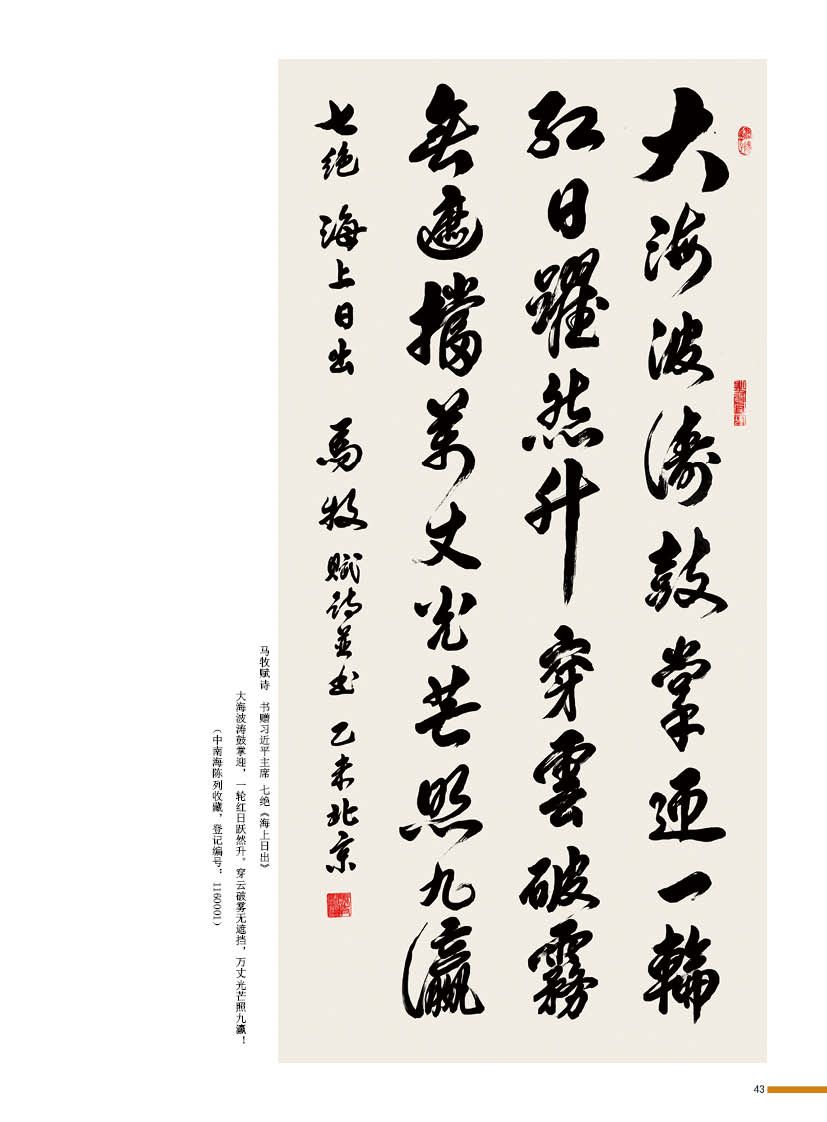 大海波濤鼓掌迎一輪
红日躍然升穿雲破霧
無遮擋萬丈光芒照九瀛
七绝 海上日出 馬牧 赋诗並书 乙未北京
马牧赋诗 书赠习近平主席 七绝《海上日出》
大海波涛鼓掌迎，一轮红日跃然升。穿云破雾无遮挡，万丈光芒照九瀛！
（中南海陈列收藏，登记编号：1160001）
43